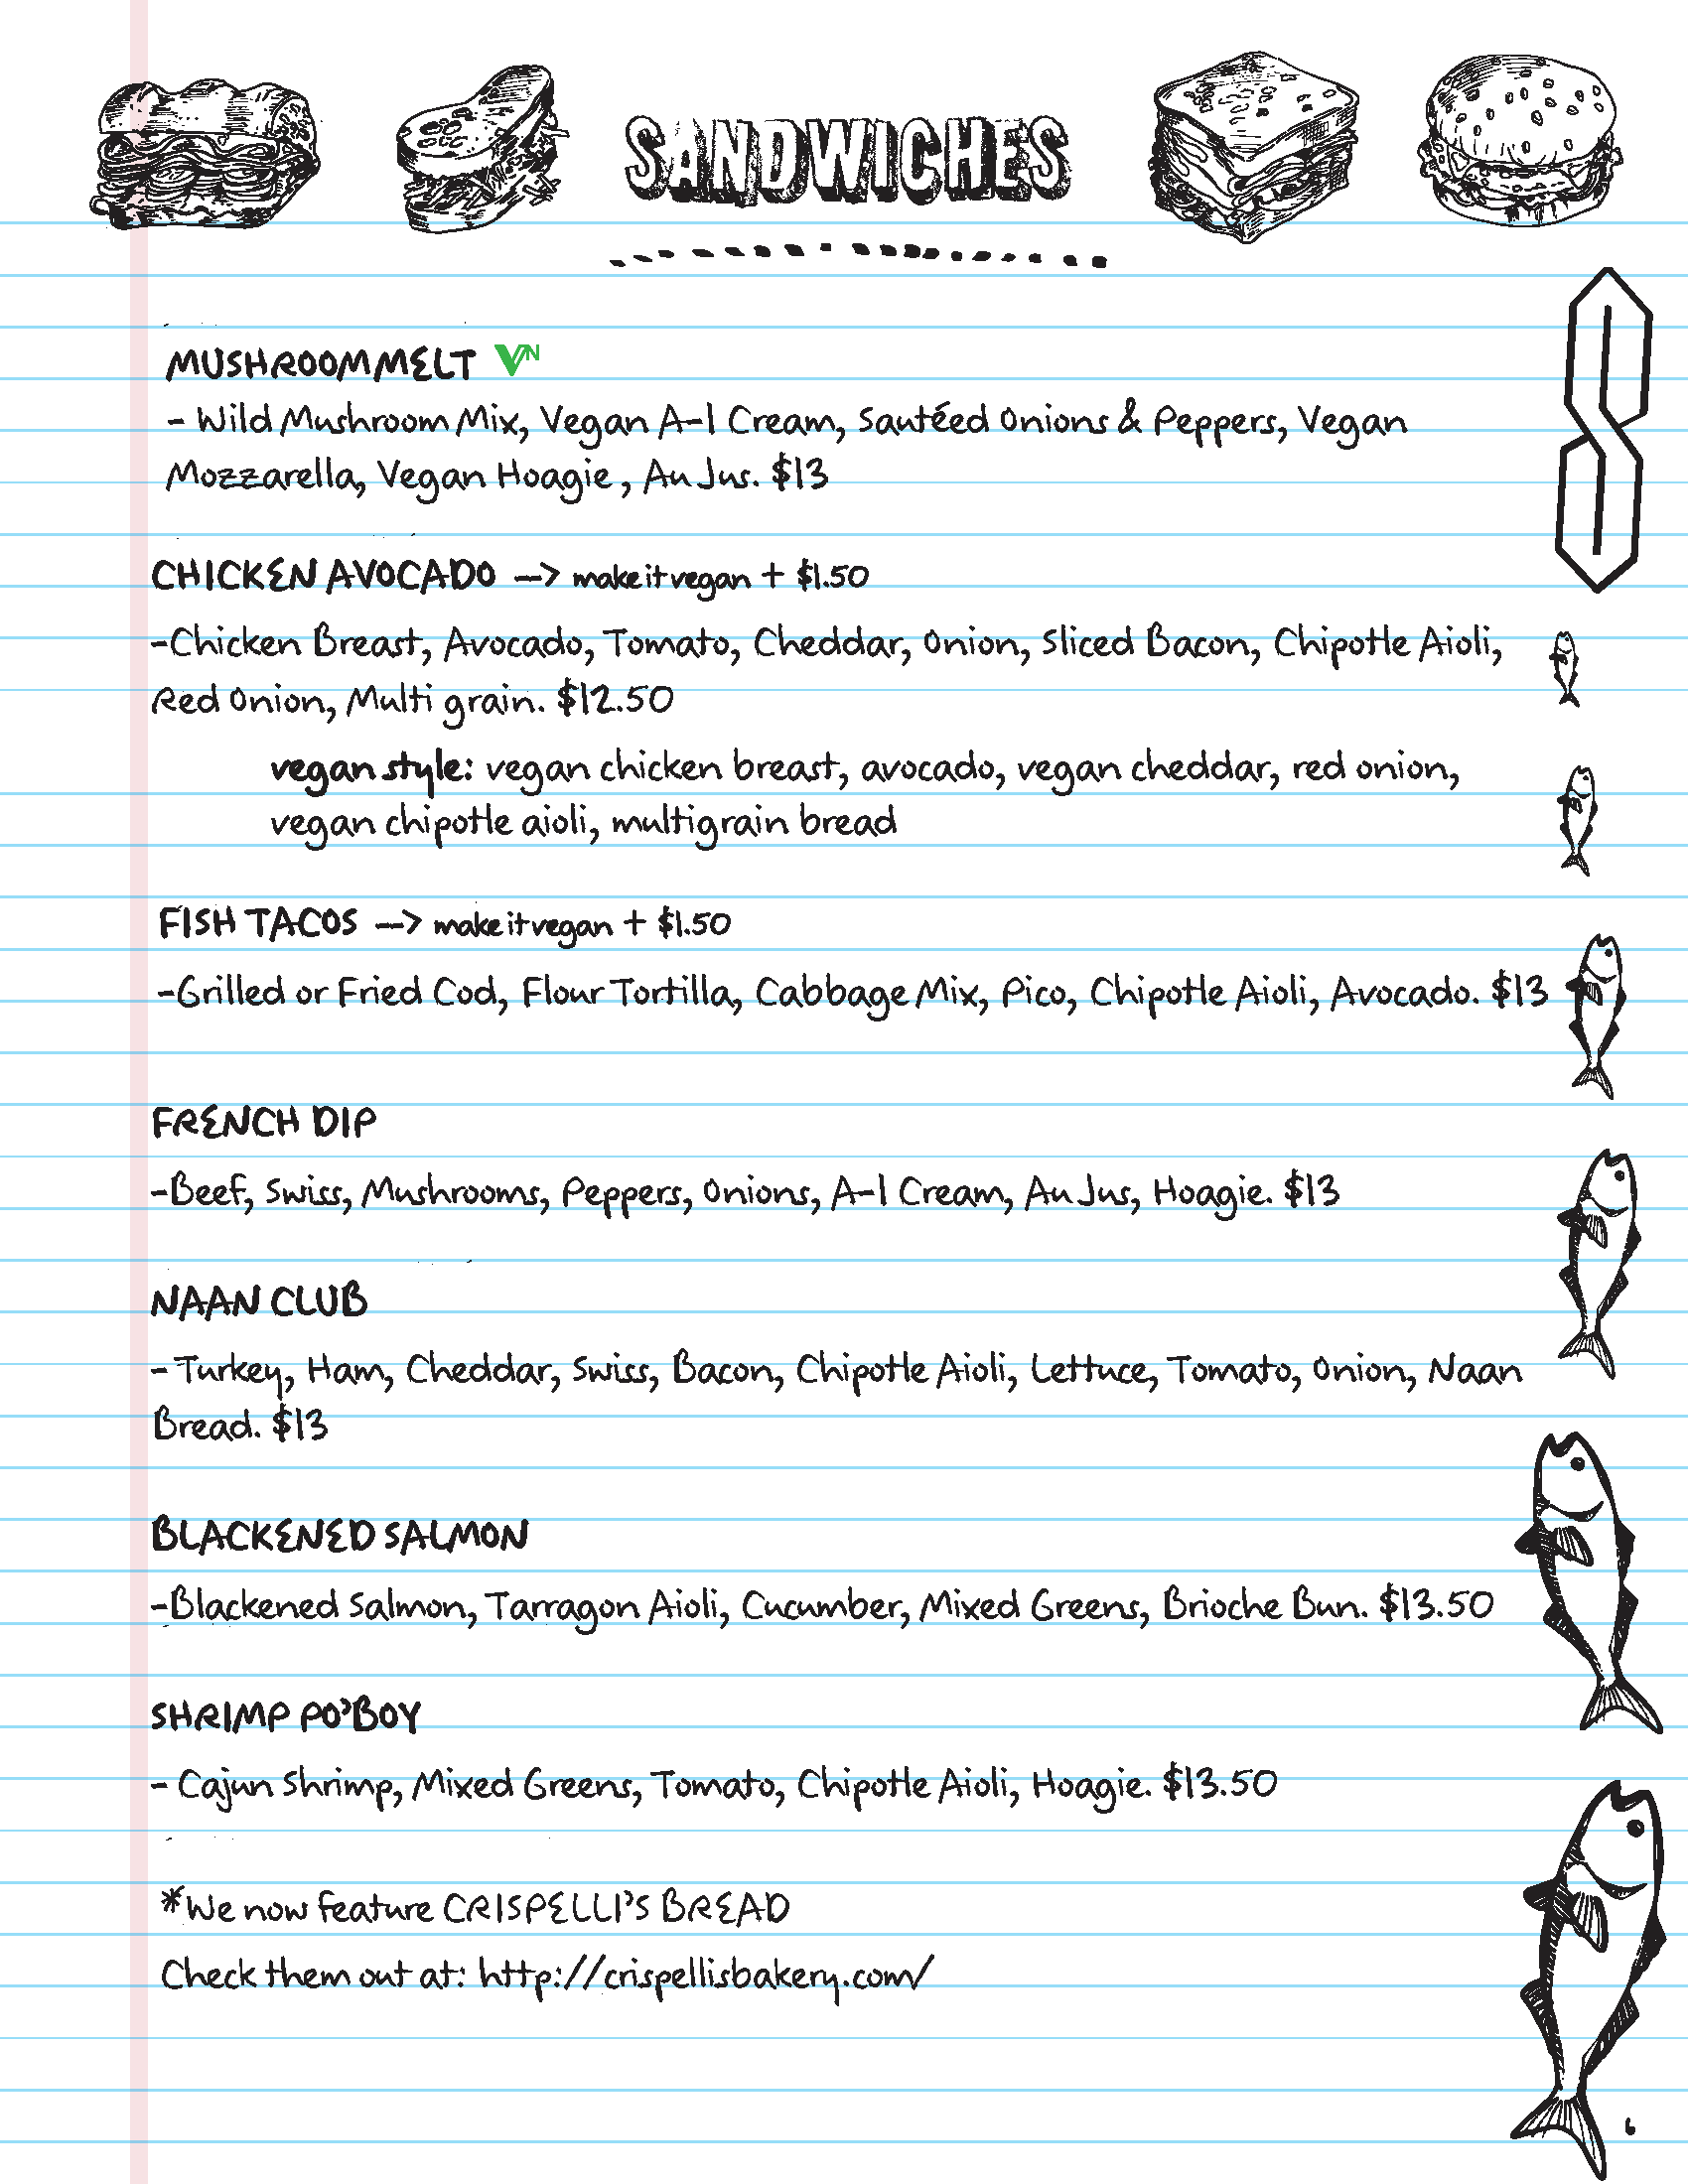 SANDWICHES
MUSHROOM MELT VN
- Wild Mushroom Mix, Vegan A-1 Cream, Sautéed Onions & Peppers, Vegan
Mozzarella, Vegan Hoagie, Au Jus. $13
CHICKEN AVOCADO --> make it vegan + $1.50
-Chicken Breast, Avocado, Tomato, Cheddar, Onion, Sliced Bacon, Chipotle Aioli,
Red Onion, Multi grain. $12.50
vegan style: vegan chicken breast, avocado, vegan cheddar, red onion,
vegan chipotle aioli, multigrain bread
FISH TACOS --> make it vegan + $1.50
-Grilled or Fried Cod, Flour Tortilla, Cabbage Mix, Pico, Chipotle Aioli, Avocado. $13
FRENCH DIP
-Beef, Swiss, Mushrooms, Peppers, Onions, A-1 Cream, Au Jus, Hoagie. $13
NAAN CLUB
- Turkey, Ham, Cheddar, Swiss, Bacon, Chipotle Aioli, Lettuce, Tomato, Onion, Naan
Bread. $13
BLACKENED SALMON
-Blackened Salmon, Tarragon Aioli, Cucumber, Mixed Greens, Brioche Bun. $13.50
SHRIMP PO'BOY
- Cajun Shrimp, Mixed Greens, Tomato, Chipotle Aioli, Hoagie. $13.50
*We now feature CRISPELLI'S BREAD
Check them out at: http://crispellisbakery.com/
6